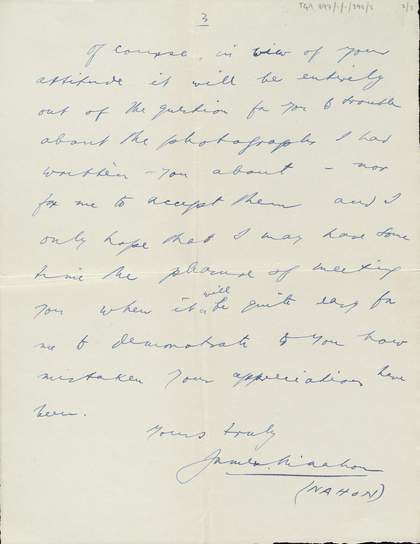 3
TGA
Of course, in view of your
attitude it will be entirely
out of the question for you to trouble
about the photographs I had
written - you about - nor
for me to accept them and I
only hope that I may have some
time the pleasure of meeting
you when it will be quite easy for
me to demonstrate to you how
mistaken your appreciations have
been.
Yours truly
James
(NAHON)